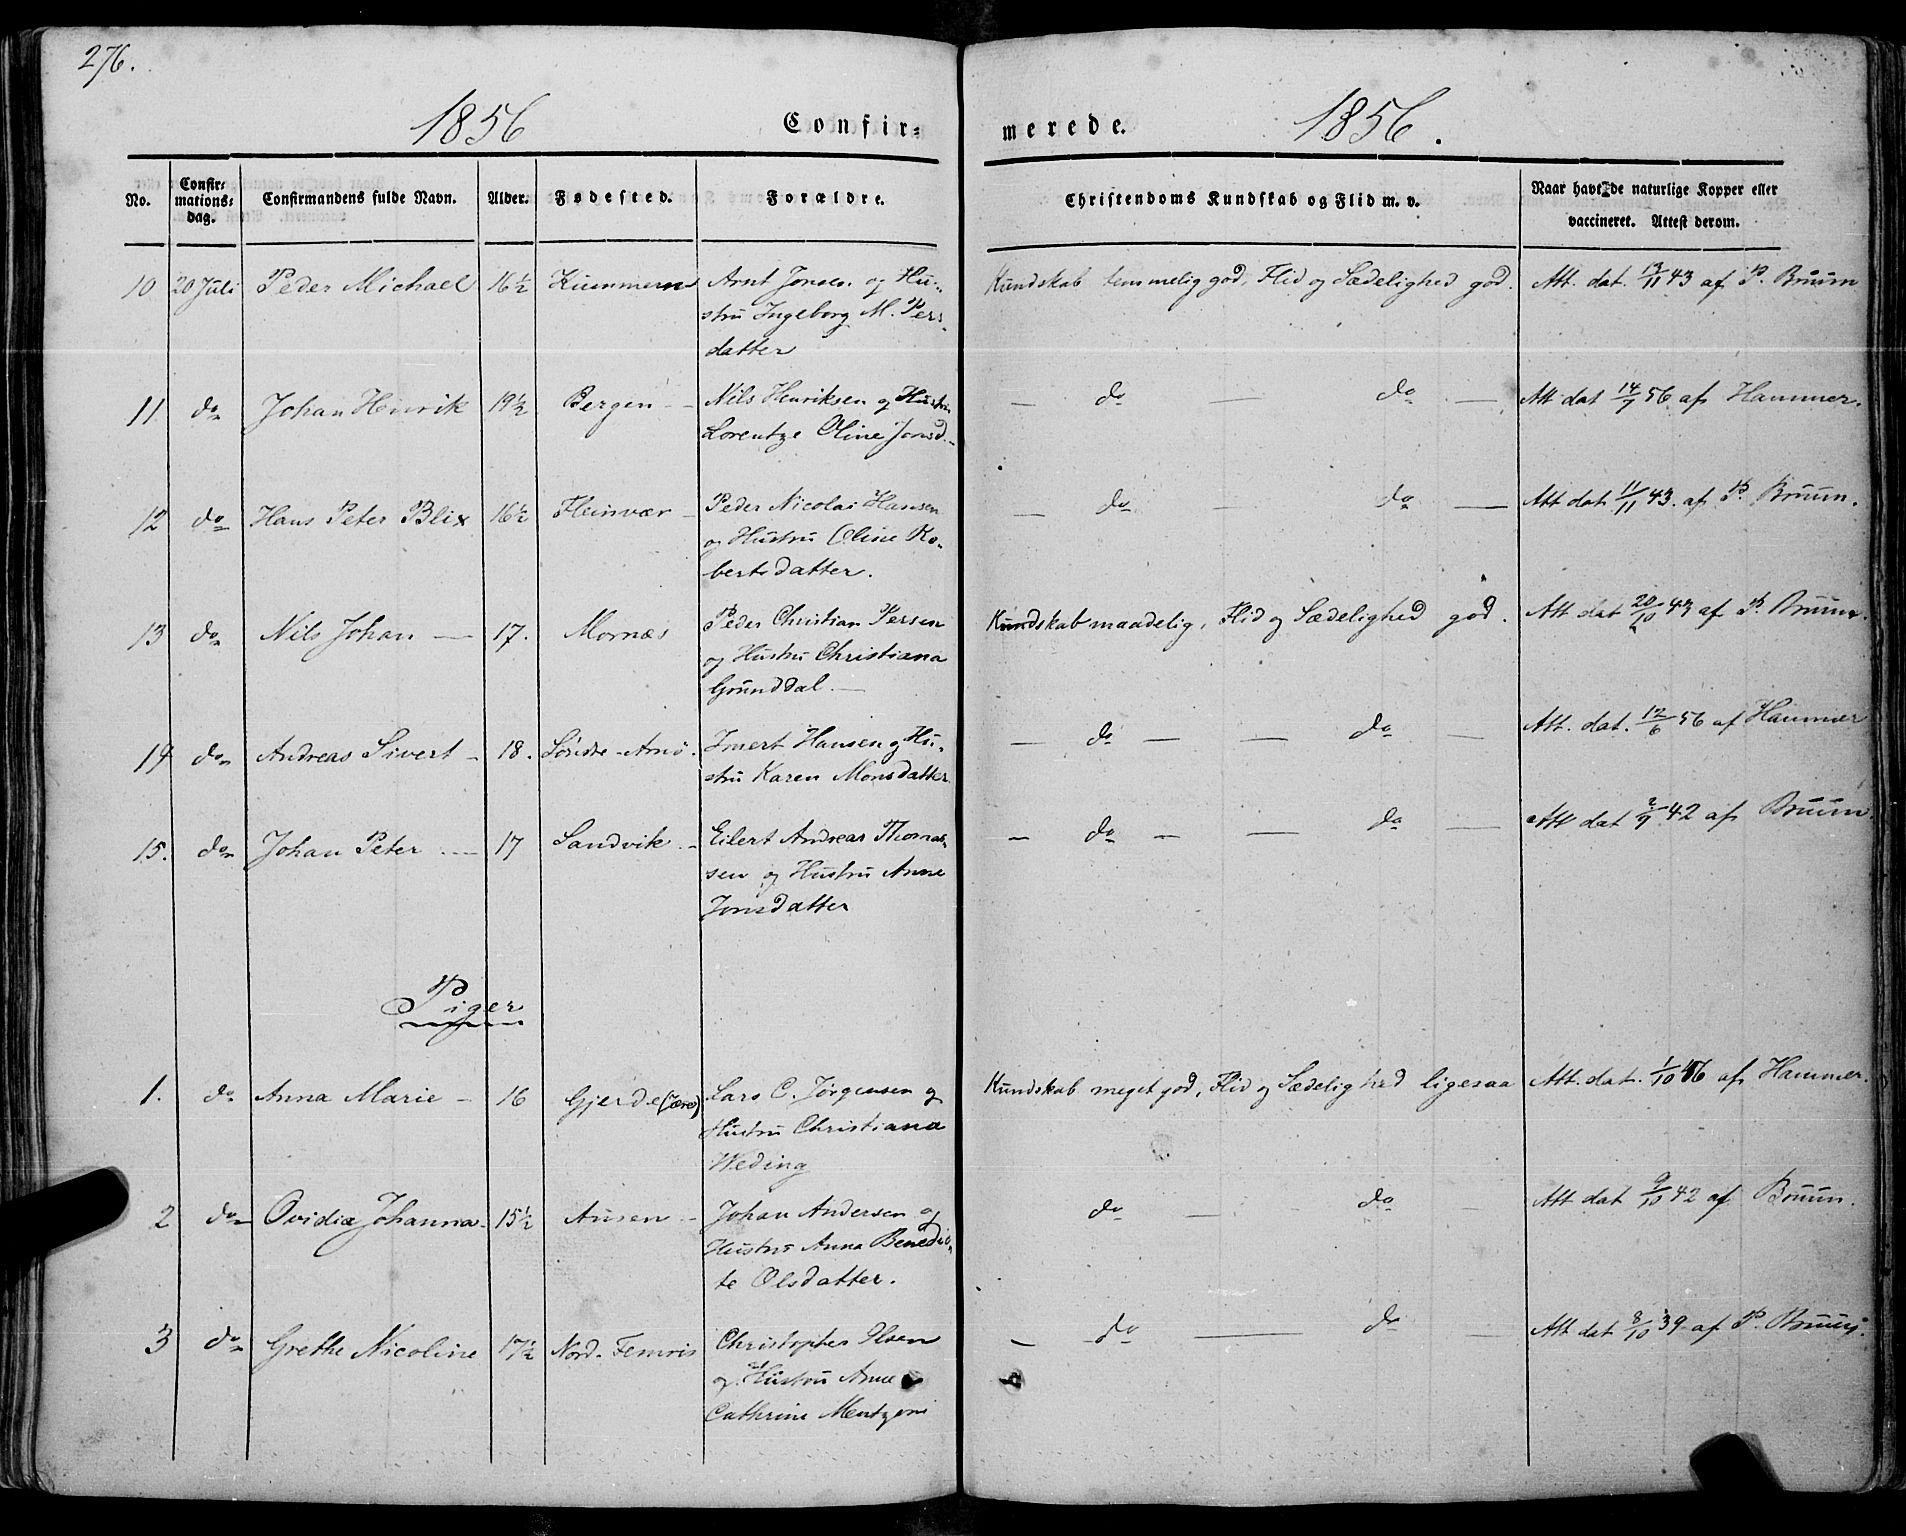 276.
1856 Confir= merede. 1856.
No. Confir=mations=dag. Confirmandens fulde Navn. Alder. Fødested. Forældre. Christendoms Kundskab og Flid m. v. Naar havt de naturlige Kopper eller vaccineret. Attest derom.
10 20 Juli Peder Michael 16½ Arnt Jonsen og Hu- Kundskab temmelig god, Flid og Sædelighed god. Att. dat. 13/11 43 af P. Bruun
stru Ingeborg M. Pers
datter
11 do Johan Henrik 19½ Bergen - Nils Henriksen og Hustru — do — do — Att dat 14/7 56 af Hammer.
Lorentze Oline Jonsd.
12 do Hans Peter Blix 16½ Fleinvær - Peder Nicolai Hansen — do — do — Att dat. 11/11 43. af P. Bruun.
og Hustru Oline Ro-
bertsdatter.
13 do Nils Johan — 17. Mornæs Peder Christian Persen Kundskab maadelig, Flid og Sædelighed god. Att dat 20/10 43 af P. Bruun.
og Hustru Christiana
Grunddal. —
14 do Andreas Sivert - 18. Søndre-Arnö. Hansen og Hu- — do — — do — Att. dat. 12/6 56 af Hammer
stru Karen Monsdatter
15. do Johan Peter — 17 Sandvik - Eilert Andreas Thomas- — do — — do — Att dat 2/9 42 af Bruun.
sen og Hustru Anne
Jonsdatter
Piger
1. do Anna Marie - 16 Gjerde Lars C. Jørgensen og Kundskab meget god, Flid og Sædelighed ligesaa Att. dat. 1/10 46 af Hammer.
Hustru Christiana
Weding
2 do Ovidia Johanna 15½ Ausen - Johan Andersen og do — do — Att dat 9/10 42 af Bruun.
Hustru Anna Benedic-
te Olsdatter.
3 do Grethe Nicoline 17½ Nord-Femris Christopher Olsen — do — do — Att dat 8/10 39 af P. Bruun.
og Hustru Anne
Cathrine Mentzoni